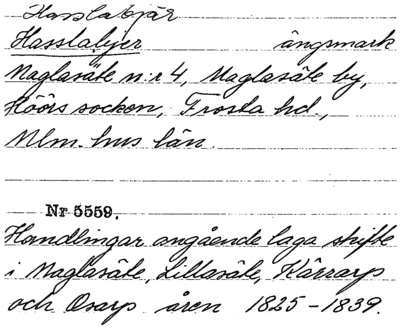 Hasslabjär
Hasslabjer ängsmark
Maglasäte n:r 4, Maglasäte by,
Höörs socken, Frosta hd.,
Mlm. hus län
Nr 5559.
Handlingar angående laga skifte
i Maglasäte, Lillasäte, Kärrarp
och Osarp åren 1825-1839.